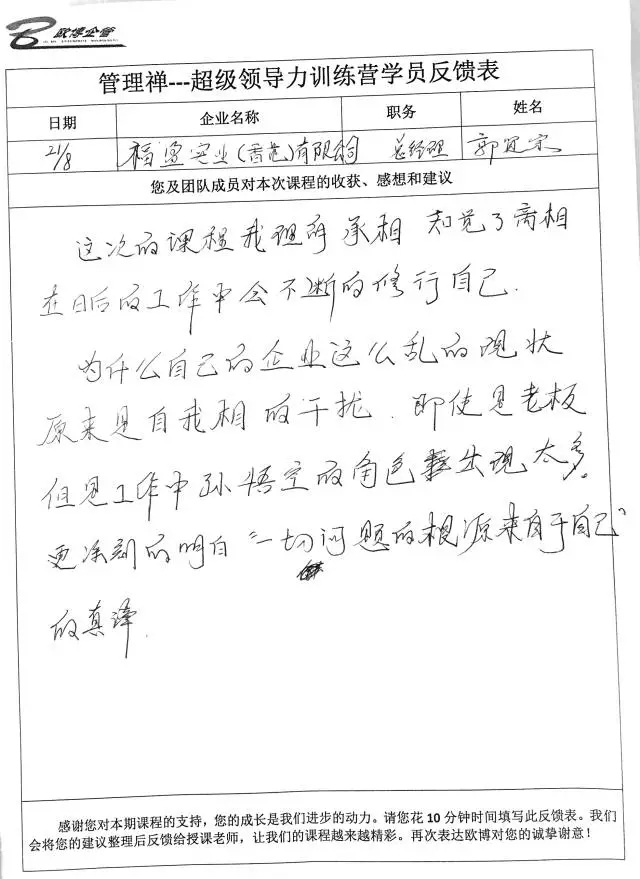 欧博企管
管理禅---超级领导力训练营学员反馈表
日期 企业名称 职务 姓名
21/8 实业(香港)有限公司 总经理 郭宜宗
您及团队成员对本次课程的收获、感想和建议
这次的课程我理解承相 知觉了离相
在日后的工作中会不断的修行自己.
为什么自己的企业这么乱的现状
原来是自我相的干扰. 即使是老板
但是工作中孙悟空的角色 出现太多.
更深刻的明白“一切问题的根源来自于自己”
的真谛.
感谢您对本期课程的支持，您的成长是我们进步的动力。请您花 10 分钟时间填写此反馈表。我们
会将您的建议整理后反馈给授课老师，让我们的课程越来越精彩。再次表达欧博对您的诚挚谢意！